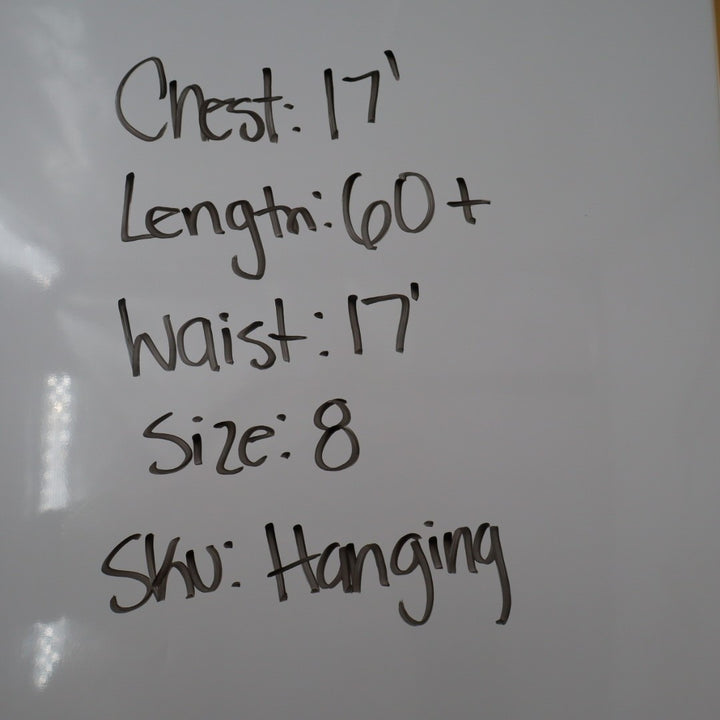 Chest: 17'
Length: 60+
Waist: 17'
Size: 8
SKU: Hanging